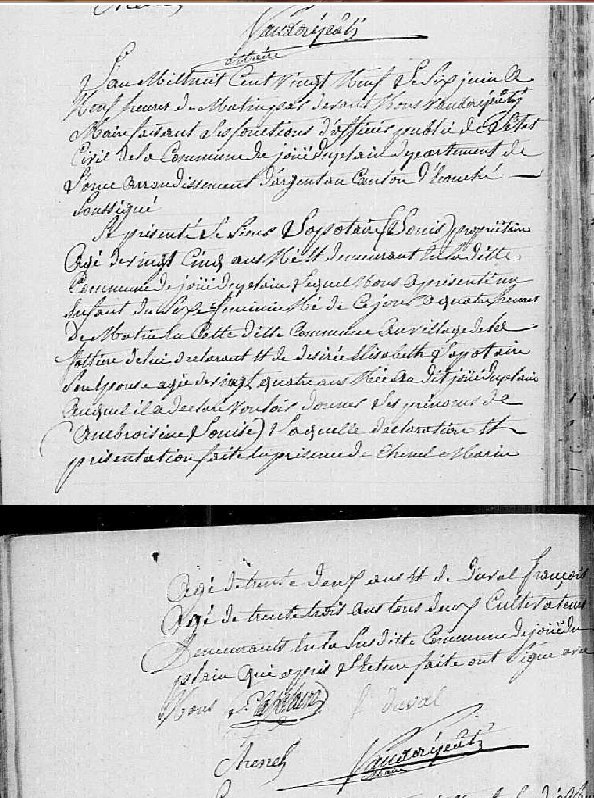 Chenel
Vauborgeix
maire
L'an Mil huit Cent vingt Neuf Le Six juin a
Neuf heures du Matin pardevant Nous
Maire faisant Les fonctions d'officier public de L'Etat
Civil de la Commune de joüé duplain departement de
L'orne arrondissement d'argentan Canton d'Ecouché
Soussigné
S'est présenté Le Sieur (Louis) propriétaire
agé de vingt Cinq ans Né et demeurant En la ditte
Commune de joüé du plain Lequel Nous a présenté un
Enfant du Sexe feminin Né de Ce jour a quatre heures
du Matin En Cette ditte Commune au village de la
de lui declarant Et de desirée Elisabeth
Son Epouse agée de vingt quatre ans Née au dit joüé du plain
auquel il a déclaré Vouloir donner Les prénoms de
(ambroisine Louise) Laquelle déclaration Et
présentation faite En présence de Chenel Marin
agé de trente deux ans Et de Duval françois
agé de trente trois ans tous deux Cultivateurs
Demeurants En la Susditte Commune de joüé du
plain Qui après Lecture faite ont Signé avec
Nous
f Duval
Chenel
maire